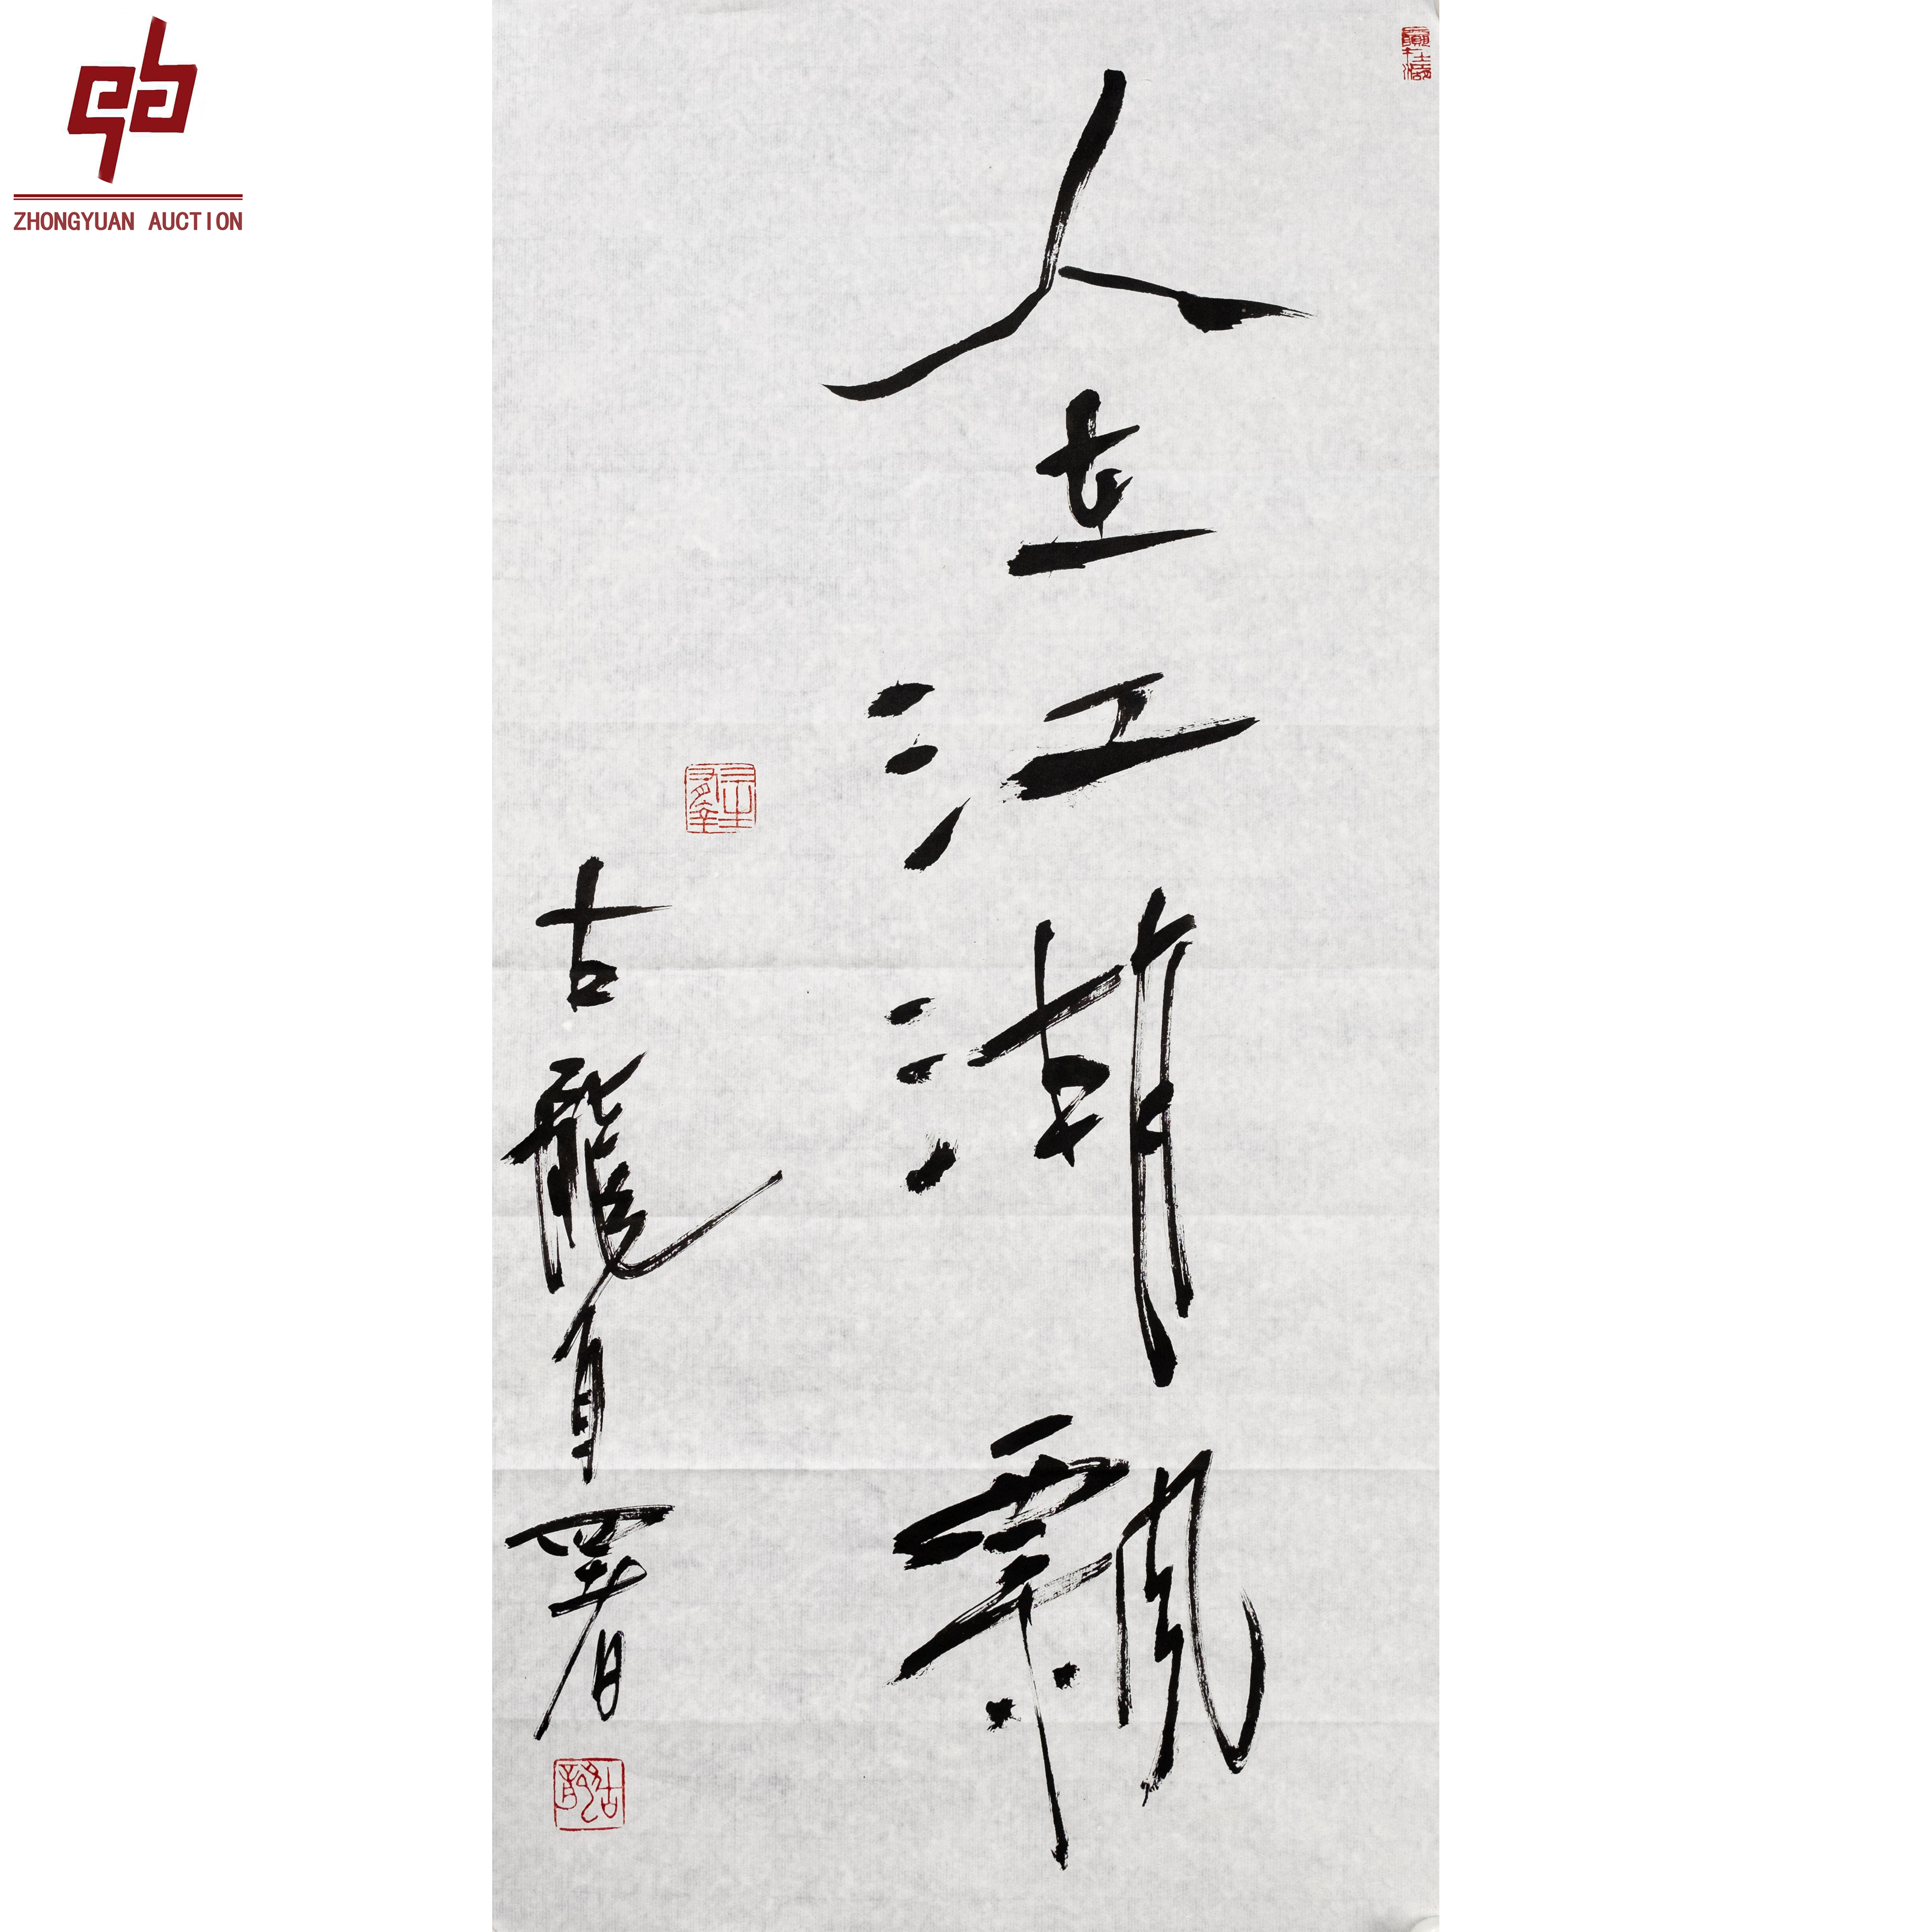 ZHONGYUAN AUCTION
人在江湖飄
古龍自署